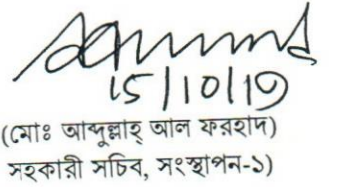 15/10/19
(মোঃ আব্দুল্লাহ্ আল ফরহাদ)
সহকারী সচিব, সংস্থাপন-১)